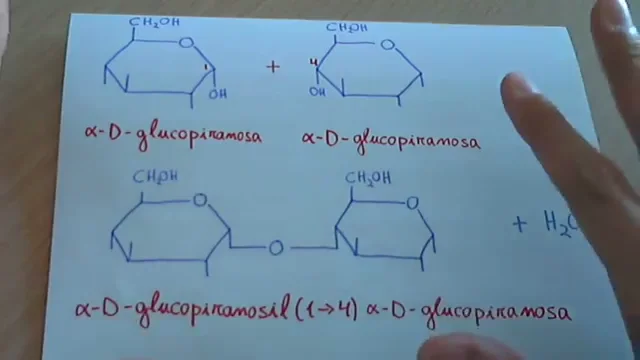 CH₂OH CH₂OH
O O
1 + 4
OH OH
α-D-glucopiranosa α-D-glucopiranosa
CH₂OH CH₂OH
O O
O + H₂O
α-D-glucopiranosil (1→4) α-D-glucopiranosa